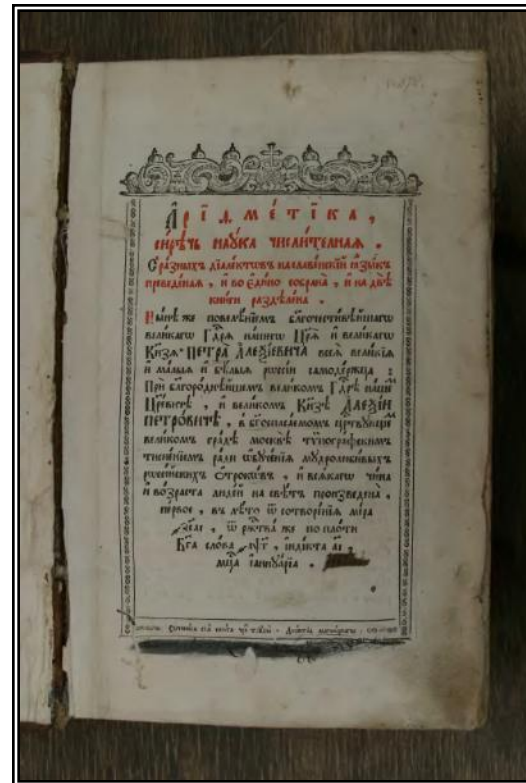 А҆риѳме́тїка,
сирѣ́чь наꙋ́ка числи́телная.
С̾ ра́зныхъ дїале́ктѡвъ на славе́нскїй ꙗ҆зы́къ
преведе́ная, и҆ во є҆ди́но собрана̀, и҆ на двѣ̀
кни́ги раздѣлена̀.
Ны́нѣ же повелѣ́нїемъ бл҃гочести́вѣйшагѡ
вели́кагѡ Гдⷭ҇ря на́шегѡ Цр҃ѧ̀ и҆ вели́кагѡ
Кнѧ́зѧ ПЕТРА̀ А҆ЛЕѮІ́ЕВИЧА всеѧ̀ вели́кїѧ
и҆ ма́лыѧ и҆ бѣ́лыѧ рѡссі́и самоде́ржца:
Прѝ бл҃горо́днѣйшемъ вели́комъ Гдⷭ҇рѣ на́шемъ
Цр҃е́вичѣ, и҆ вели́комъ Кнѧ́зѣ А҆ЛЕѮІ́И
ПЕТРО́ВИЧѢ, в̾ бг҃оспаса́емомъ црⷭ҇твꙋ́ющемъ
вели́комъ гра́дѣ москвѣ̀ тѵпогра́фскимъ
тисне́нїемъ ра́ди ѡ҆бꙋче́нїѧ мꙋдролюби́выхъ
рѡссі́йскихъ ѻ҆́трокѡвъ, и҆ всѧ́кагѡ чи́на
и҆ во́зраста люде́й на свѣ́тъ произведена̀,
пе́рвое, въ лѣ́то ѿ сотворе́нїѧ мі́ра
҂зсаі, ѿ ржⷭ҇тва̀ же по пло́ти
Бг҃а сло́ва ҂аѱг, і҆ндї́кта аі,
мцⷭ҇а і҆аннꙋа́рїа.
Сочини́сѧ сїѧ̀ кни́га чрез̾ трꙋды̀